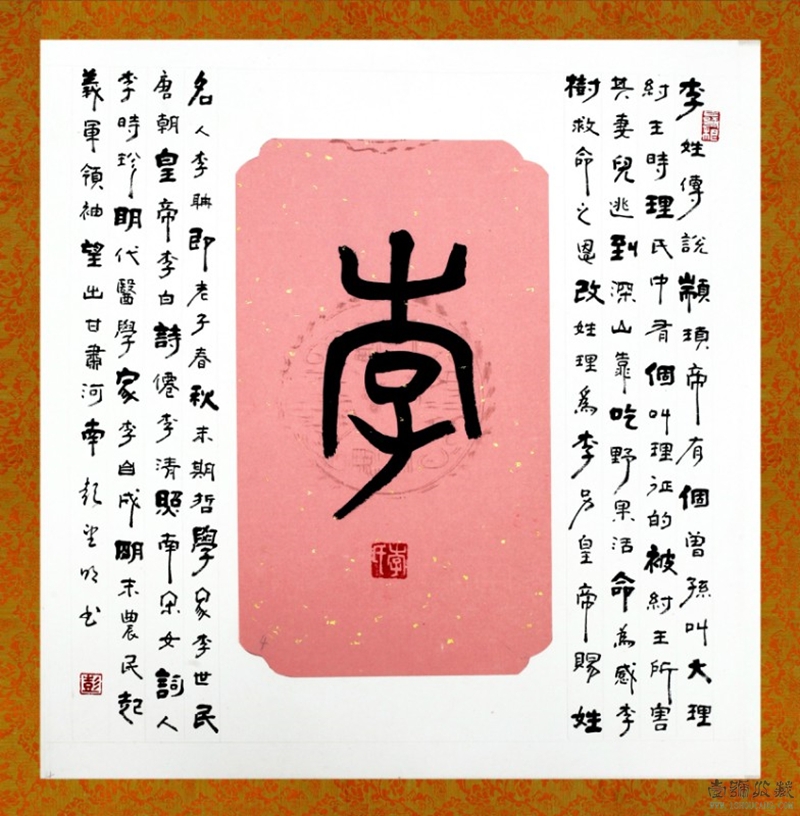 李姓傳說顓頊帝有個曾孫叫大理
紂王時理氏中有個叫理征的被紂王所害
其妻兒逃到深山靠吃野果活命為感李
樹救命之恩改姓理爲李另皇帝賜姓
李
李氏
名人李聃即老子春秋末期哲學家李世民
唐朝皇帝李白詩僊李清照南宋女詞人
李時珍明代醫學家李自成明末農民起
義軍領袖望出甘肅河南 彭望明书
彭
壹號收藏